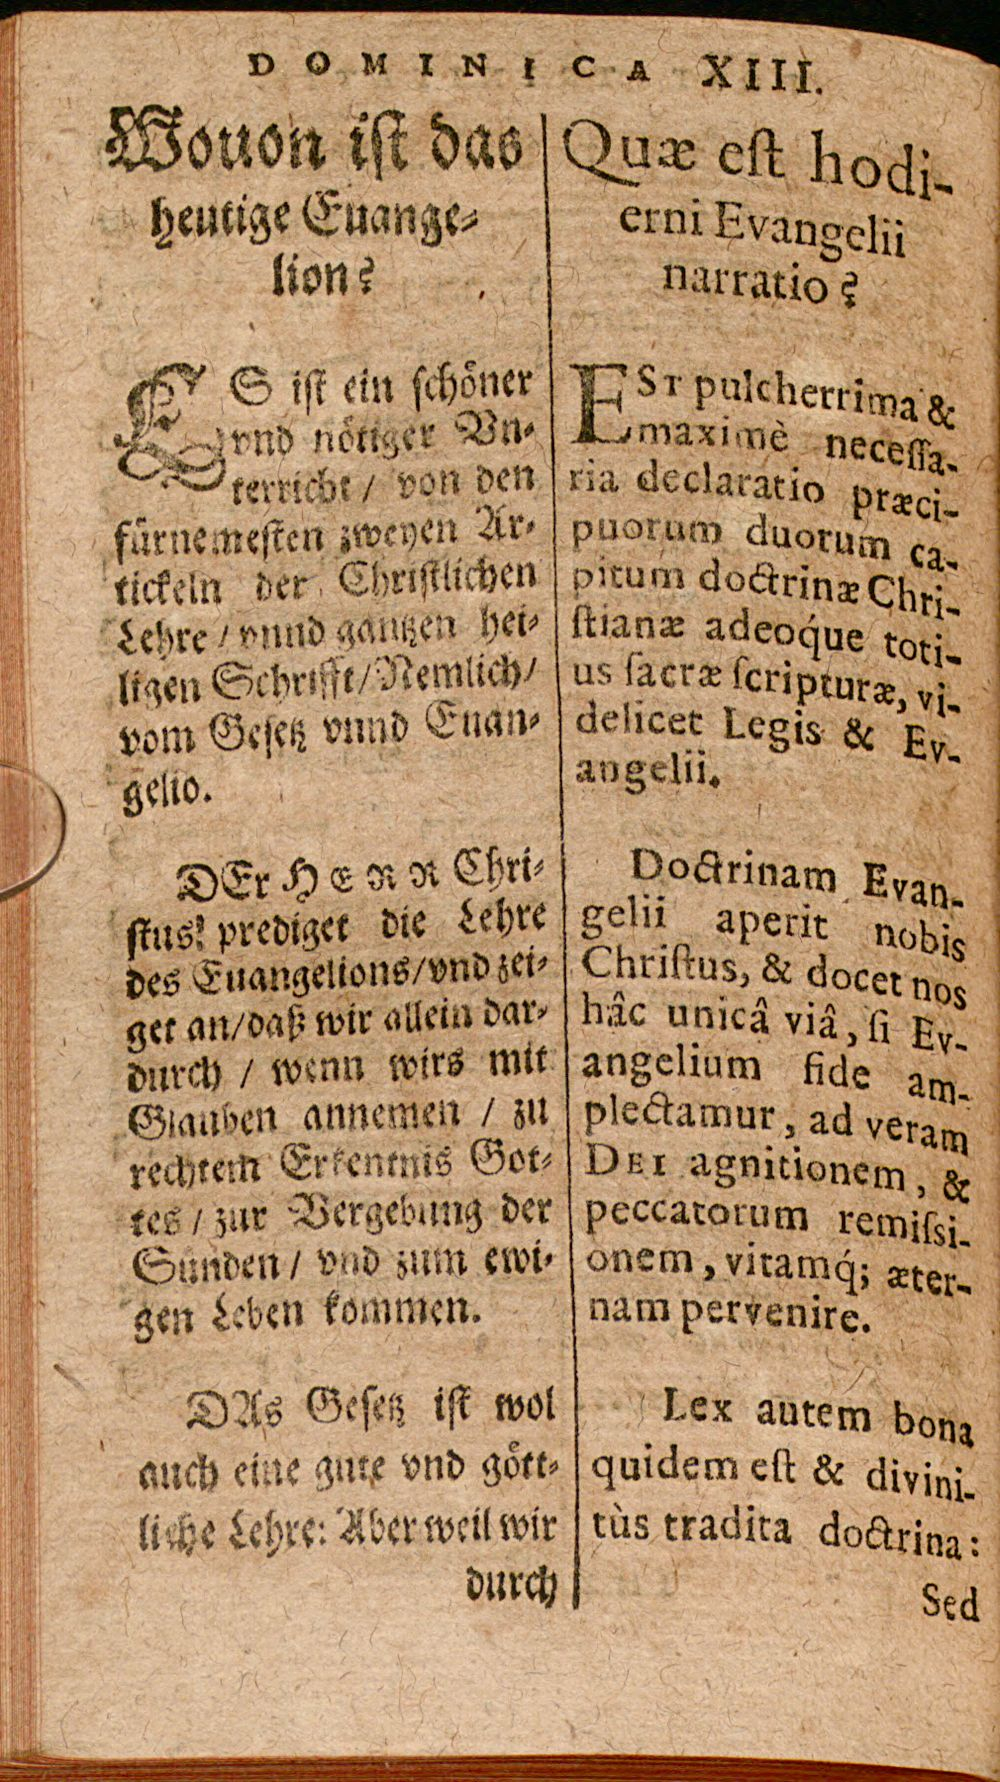 DOMINICA XIII.
Wouon iſt das
heutige Euange⸗
lion?
ES iſt ein ſchöner
vnd nötiger Vn⸗
terricht / von den
fürnemeſten zweyen Ar⸗
tickeln der Chriſtlichen
Lehre / vnnd gantzen hei⸗
ligen Schrifft / Nemlich /
vom Geſetz vnnd Euan⸗
gelio.
DEr HERR Chri⸗
ſtus prediget die Lehre
des Euangelions / vnd zei⸗
get an / daß wir allein dar⸗
durch / wenn wirs mit
Glauben annemen / zu
rechtem Erkentnis Got⸗
tes / zur Vergebung der
Sünden / vnd zum ewi⸗
gen Leben kommen.
DAs Geſetz iſt wol
auch eine gute vnd gött⸗
liche Lehre: Aber weil wir
durch
Quæ eſt hodi-
erni Evangelii
narratio?
EST pulcherrima &
maximè neceſſa-
ria declaratio præci-
puorum duorum ca-
pitum doctrinæ Chri-
ſtianæ adeoq́ue toti-
us ſacræ ſcripturæ, vi-
delicet Legis & Ev-
angelii.
Doctrinam Evan-
gelii aperit nobis
Chriſtus, & docet nos
hâc unicâ viâ, ſi Ev-
angelium fide am-
plectamur, ad veram
DEI agnitionem, &
peccatorum remiſsi-
onem, vitamq́; æter-
nam pervenire.
Lex autem bona
quidem eſt & divini-
tùs tradita doctrina:
Sed